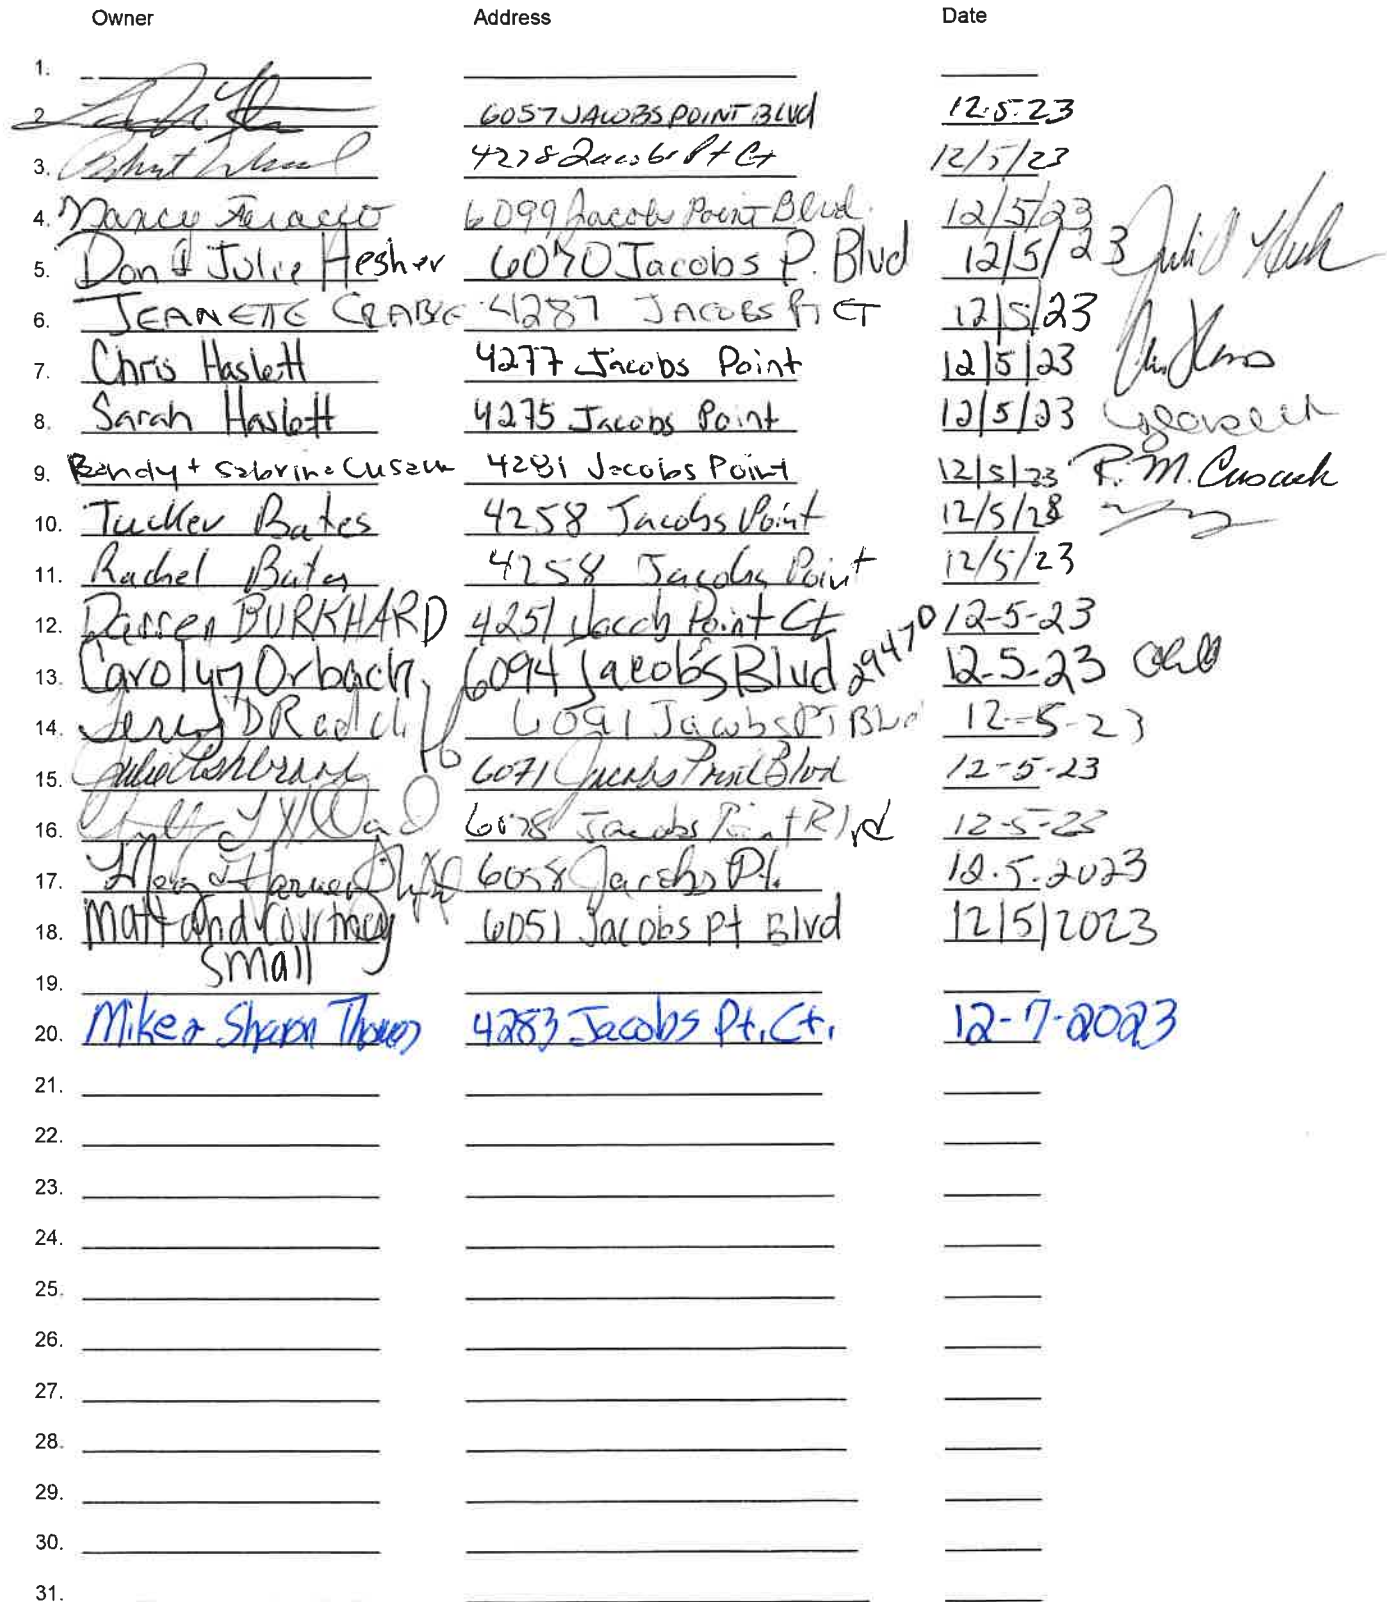 Owner Address Date
1.
2. 6057 JACOBS POINT BLVd 12.5.23
3. 4278 Jacobs Pt Ct 12/5/23
4. Nancy 6099 Jacobs Point Blvd. 12/5/23
5. Don & Julie Hesher 6070 Jacobs P. Blvd 12/5/23
6. JEANETTE CRABBE 4287 JACOBS Pt CT 12/5/23
7. Chris Haslett 4277 Jacobs Point 12/5/23
8. Sarah Haslett 4275 Jacobs Point 12/5/23
9. Randy + Sabrina Cusack 4281 Jacobs Point 12/5/23 R. M. Cusack
10. Tucker Bates 4258 Jacobs Point 12/5/23
11. Rachel Bates 4258 Jacobs Point 12/5/23
12. Darren BURKHARD 4251 Jacob Point Ct 12-5-23
13. Carolyn Orbach 6094 Jacobs Blvd 29470 12-5-23
14. D Radcliff 6091 Jacobs Pt Blvd 12-5-23
15. Julie Ashbrand 6071 Jacobs Point Blvd 12-5-23
16. Jacobs Point Blvd 12-5-23
17. 6058 Jacobs Pt. 12.5.2023
18. Matt and Courtney 6051 Jacobs Pt Blvd 12/5/2023
small
19.
20. Mike & Sharon Thomas 4283 Jacobs Pt. Ct. 12-7-2023
21.
22.
23.
24.
25.
26.
27.
28.
29.
30.
31.